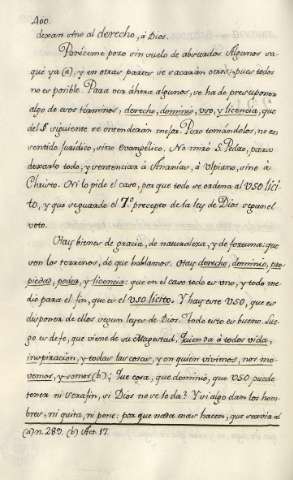 400.
dexan otro al derecho, à Dios.
Pareceme pero sin vuelo de abreuados Algunos sa-
qué ya (a), y en otras partes se sacarán otros; pues todos
no es posible. Para ora áhora algunos, se ha de presuponer
algo de esos términos, derecho, dominio, uso, y licencia, que
del § siguiente se entenderán mejor. Pero tomandolos, no en
sentido Juridico, sino evangélico. No miró S. Pedro, para
dexarlo todo, y sentenciar à Ananías, à Ulpiano, sino à
Christo. Ni lo pide el caso, por que todo se ordena al uso líci-
to, y que se guarde el 7º precepto de la ley de Dios segun el
voto.
Hay bienes de gracia, de naturaleza, y de fortuna: que
son los terrenos, de que hablamos. Hay derecho, dominio, pro-
piedad, poses, y licencia: que en el caso todo es uno, y todo me-
dio para el fin, que es el uso lícito. Y hay este uso, que es
disponer de ellos segun leyes de Dios. Todo esto es bueno. Lue-
go es defe, que viene de su Magestad, Quien da à todos vida,
inspiracion, y todas las cosas, y en quién vivimos, nos mo-
vemos, y somos (b): Que cosa, que dominio, que uso puede
tener ni Serafin, si Dios no se lo da? Y si algo dan los hom-
bres, ni quita, ni pone: por que nada mas hacen, que servir al
(a) n. 289. (b) Act. 17.